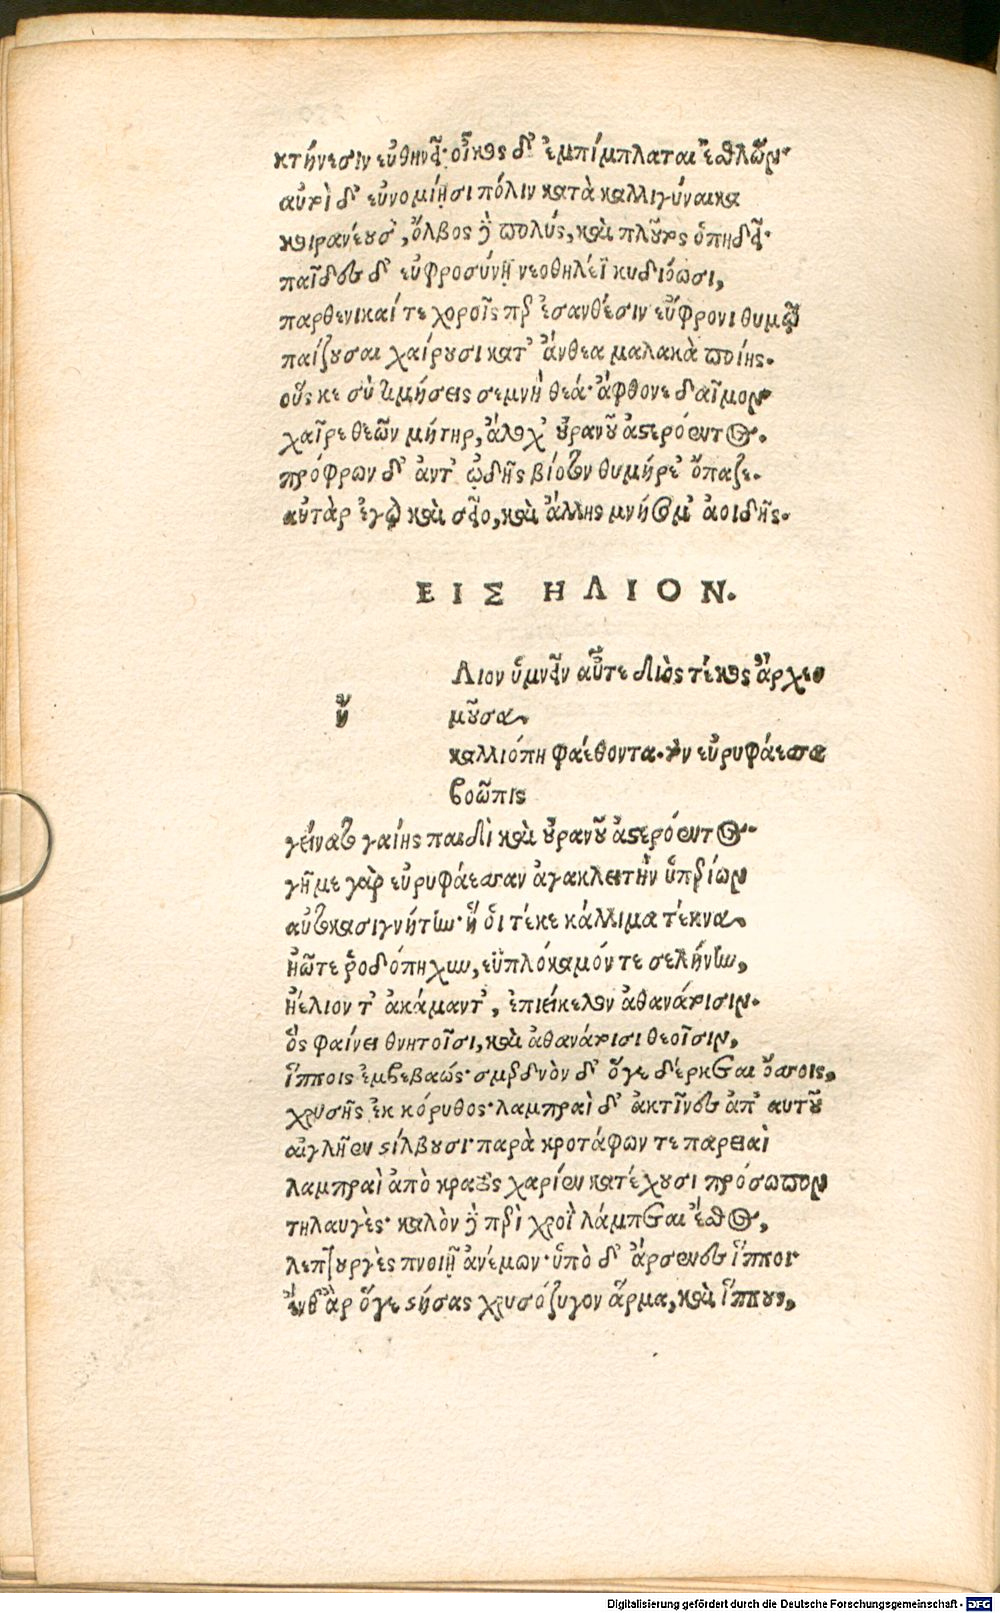 κτήνεσιν εὐθηνεῖ· οἶκος δ' ἐμπίμπλαται ἐσθλῶν·
αὐτοὶ δ' εὐνομίῃσι πόλιν κατὰ καλλιγύναικα
κοιρανέουσ', ὄλβος δὲ πολὺς, καὶ πλοῦτος ὀπηδεῖ·
παῖδες δ' εὐφροσύνῃ νεοθηλέϊ κυδιόωσι,
παρθενικαί τε χοροῖς περεσανθέσιν εὔφρονι θυμῷ
παίζουσαι χαίρουσι κατ' ἄνθεα μαλακὰ ποίης.
οὕς κε σὺ τιμήσεις σεμνὴ θεά· ἄφθονε δαῖμον
χαῖρε θεῶν μήτηρ, ἄλοχ' οὐρανοῦ ἀστερόεντος.
πρόφρων δ' ἀντ' ᾠδῆς βίοτον θυμήρε' ὄπαζε.
αὐτὰρ ἐγὼ καὶ σεῖο, καὶ ἄλλης μνήσομ' ἀοιδῆς.
ΕΙΣ ΗΛΙΟΝ.
ἥ
Λιον ὑμνεῖν αὖτε Διὸς τέκος ἄρχεο
μοῦσα
καλλιόπη φαέθοντα· τὸν εὐρυφάεσσα
βοῶπις
γείνατο γαίης παιδὶ καὶ οὐρανοῦ ἀστερόεντος·
γῆμε γὰρ εὐρυφάεσσαν ἀγακλειτὴν ὑπερίων
αὐτοκασιγνήτην· ἥ οἱ τέκε κάλλιμα τέκνα
ἠῶτε ῥοδόπηχυν, εὐπλόκαμόν τε σελήνην,
ἠέλιον τ' ἀκάμαντ', ἐπιείκελον ἀθανάτοισιν.
ὃς φαίνει θνητοῖσι, καὶ ἀθανάτοισι θεοῖσιν,
ἵπποις ἐμβεβαώς· σμερδνὸν δ' ὅγε δέρκεται ὄσσοις,
χρυσῆς ἐκ κόρυθος· λαμπραὶ δ' ἀκτῖνες ἀπ' αυτοῦ
αἰγλῆεν στίλβουσι· παρὰ κροτάφων τε παρειαὶ
λαμπραὶ ἀπὸ κρατὸς χαρίεν κατέχουσι πρόσωπον
τηλαυγὲς· καλὸν δὲ περὶ χροῒ λάμπεται ἔσθος,
λεπτουργὲς πνοιῇ ἀνέμων· ὑπὸ δ' ἄρσενες ἵπποι
ἔνθ' ἂρ ὅγε στήσας χρυσόζυγον ἅρμα, καὶ ἵππους,
Digitalisierung gefördert durch die Deutsche Forschungsgemeinschaft - DFG